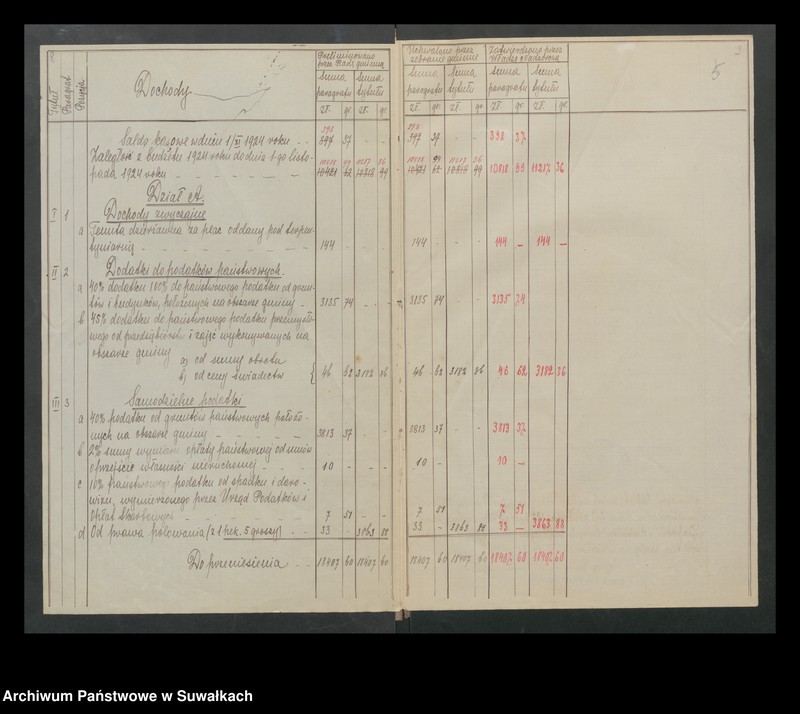 8
3
5
Tytuł
Paragraf
Pozycja
Dochody
Preliminowano przez Radę gminną
Uchwalono przez zebranie gminne
Zatwierdzono przez Władze nadzorcze
Suma paragrafu
Suma tytułu
Suma paragrafu
Suma tytułu
Suma paragrafu
Suma tytułu
zł. gr. zł. gr.
zł. gr. zł. gr. zł. gr. zł. gr.
Saldo kasowe w dniu 1/XI 1924 roku - - 397 37 - - 397 37 - - 398 37
Zaległość z budżetu 1924 roku do dnia 1-go listo-
pada 1924 roku - - - - 10421 62 10818 99 10421 62 10818 99 10818 99 11217 36
Dział A.
I 1 Dochody zwyczajne
a Tenuta dzierżawna za plac oddany pod terpen-
tyniarnię - - - - 144 - - - 144 - - - 144 - 144 -
II 2 Dodatki do podatków państwowych.
a 40% dodatku 100% do państwowego podatku od grun-
tów i budynków, położonych na obszarze gminy - 3135 74 - - 3135 74 - - 3135 74
b 45% dodatku do państwowego podatku przemysło-
wego od przedsiębiorstw i zajęć wykonywanych na
obszarze gminy a) od sumy obrotu
b) od ceny świadectw { 46 62 3182 36 46 62 3182 36 46 62 3182 36
III 3 Samodzielne podatki
a 40% podatku od gruntów państwowych położo-
nych na obszarze gminy - - - - 3813 37 - - 3813 37 - - 3813 37
b 2% sumy wymiaru opłaty państwowej od umów
o przejście własności nieruchomej - - - 10 - - - 10 - - - 10 -
c 10% państwowego podatku od spadku i daro-
wizn, wymierzonego przez Urząd Podatków i
Opłat Skarbowych - - - - 7 51 7 51 7 51
d Od prawa polowania (z 1 hek. 5 groszy) - - 33 - 3863 88 33 - 3863 88 33 - 3863 88
Do przeniesienia - - 18407 60 18407 60 18407 60 18407 60 18407 60 18407 60
Archiwum Państwowe w Suwałkach